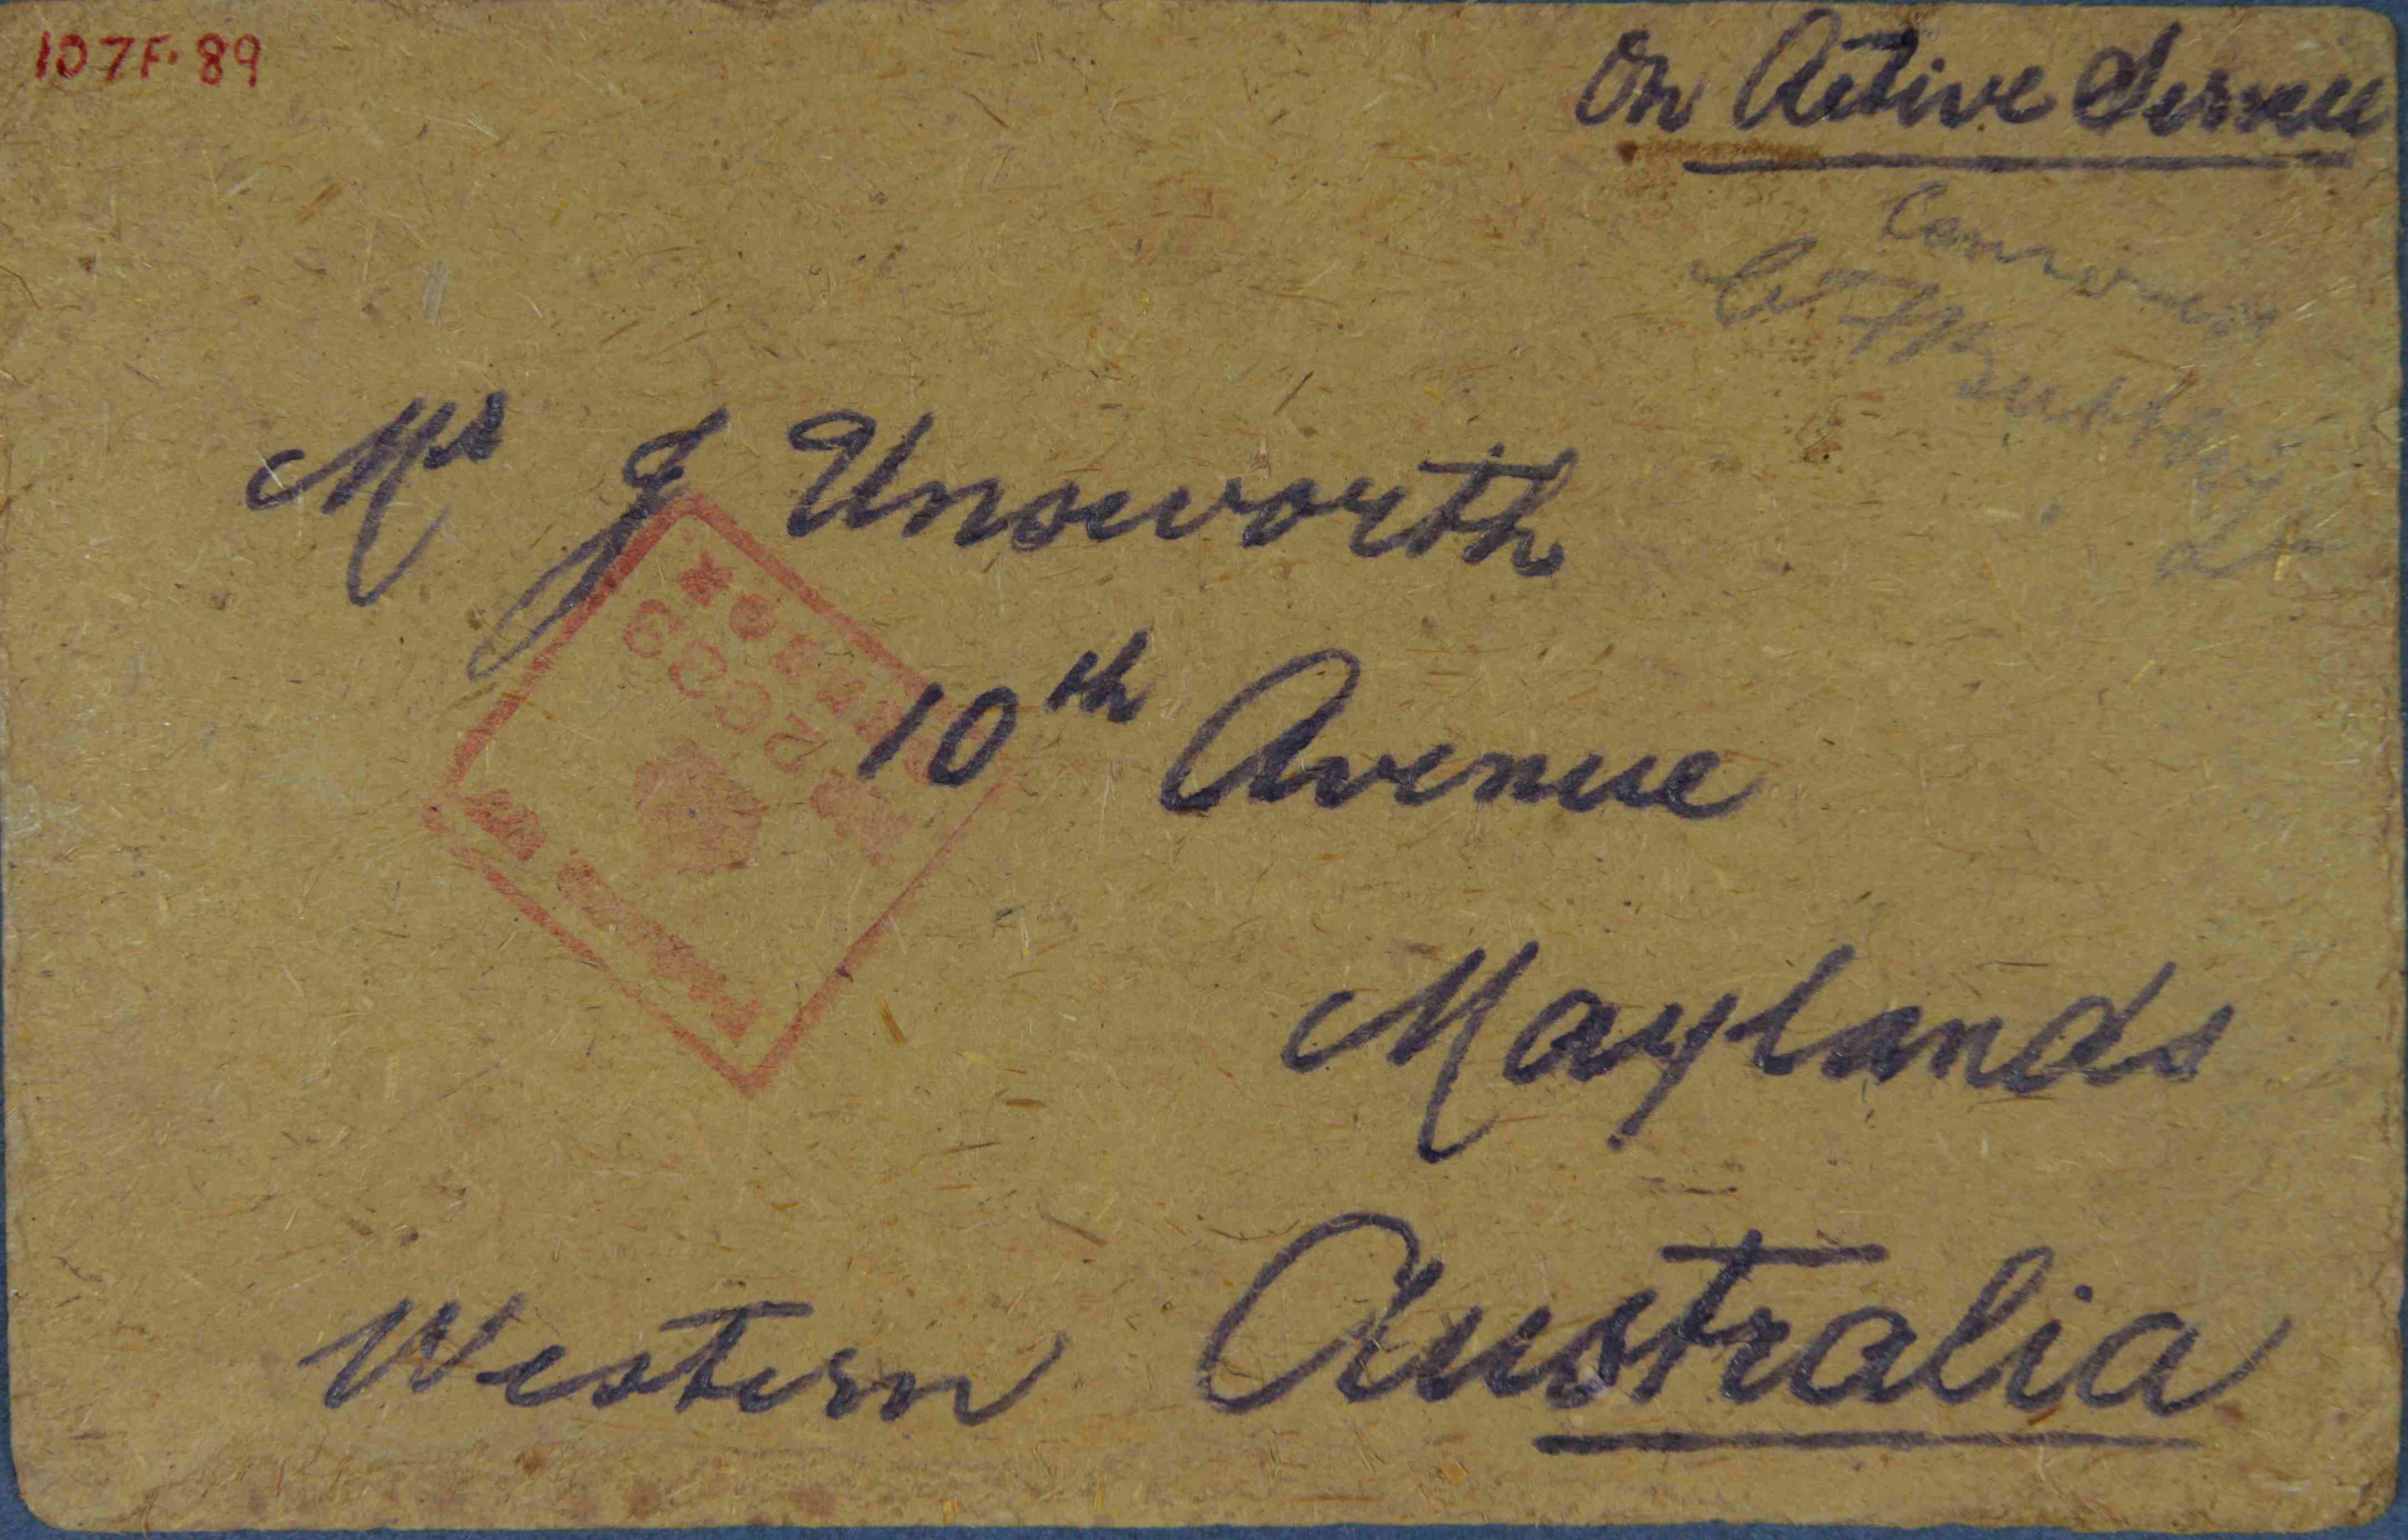 107F.89
On Active Service
Mr J Unsworth
10th Avenue
Maylands
Western Australia